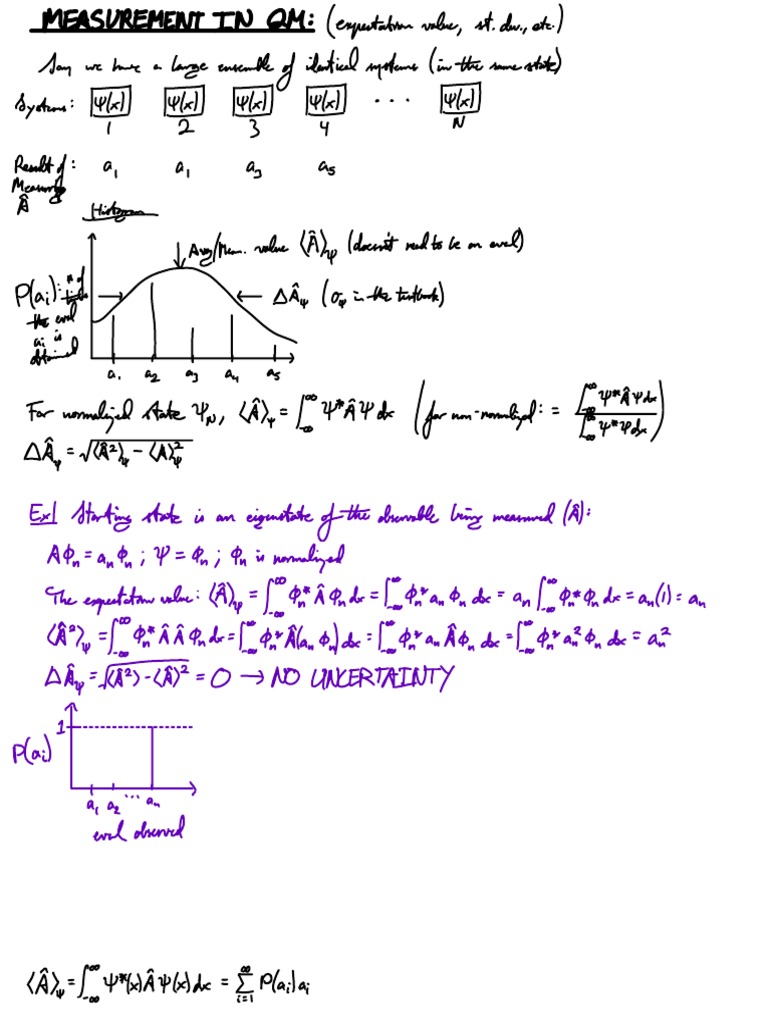 MEASUREMENT IN QM: (expectation value, st. dev., etc.)
Say we have a large ensemble of identical systems (in the same state)
Systems: Ψ(x) Ψ(x) Ψ(x) Ψ(x) ... Ψ(x)
1 2 3 4 N
Result of: a₁ a₁ a₃ a₅
Measuring
Â
Histogram
Avg/Mean. value ⟨Â⟩_Ψ (doesn't need to be an eval)
P(aᵢ): # of
times
the eval
aᵢ is
obtained
ΔÂ_Ψ (σ_Ψ in the textbook)
a₁ a₂ a₃ a₄ a₅
For normalized state Ψ_N, ⟨Â⟩_Ψ = ∫_{-∞}^{∞} Ψ* Â Ψ dx (for non-normalized: = ∫_{-∞}^{∞} Ψ* Â Ψ dx / ∫_{-∞}^{∞} Ψ* Ψ dx)
ΔÂ_Ψ = √(⟨Â²⟩_Ψ - ⟨A⟩²_Ψ)
Ex1 Starting state is an eigenstate of the observable being measured (Â):
Aϕₙ = aₙϕₙ ; Ψ = ϕₙ ; ϕₙ is normalized
The expectation value: ⟨Â⟩_Ψ = ∫_{-∞}^{∞} ϕₙ* Â ϕₙ dx = ∫_{-∞}^{∞} ϕₙ* aₙ ϕₙ dx = aₙ ∫_{-∞}^{∞} ϕₙ* ϕₙ dx = aₙ(1) = aₙ
⟨Â²⟩_Ψ = ∫_{-∞}^{∞} ϕₙ* Â Â ϕₙ dx = ∫_{-∞}^{∞} ϕₙ* Â(aₙ ϕₙ) dx = ∫_{-∞}^{∞} ϕₙ* aₙ Â ϕₙ dx = ∫_{-∞}^{∞} ϕₙ* aₙ² ϕₙ dx = aₙ²
ΔÂ_Ψ = √(⟨Â²⟩ - ⟨Â⟩²) = 0 → NO UNCERTAINTY
1
P(aᵢ)
a₁ a₂ ... aₙ
eval observed
⟨Â⟩_Ψ = ∫_{-∞}^{∞} Ψ*(x) Â Ψ(x) dx = ∑_{i=1}^{∞} P(aᵢ) aᵢ